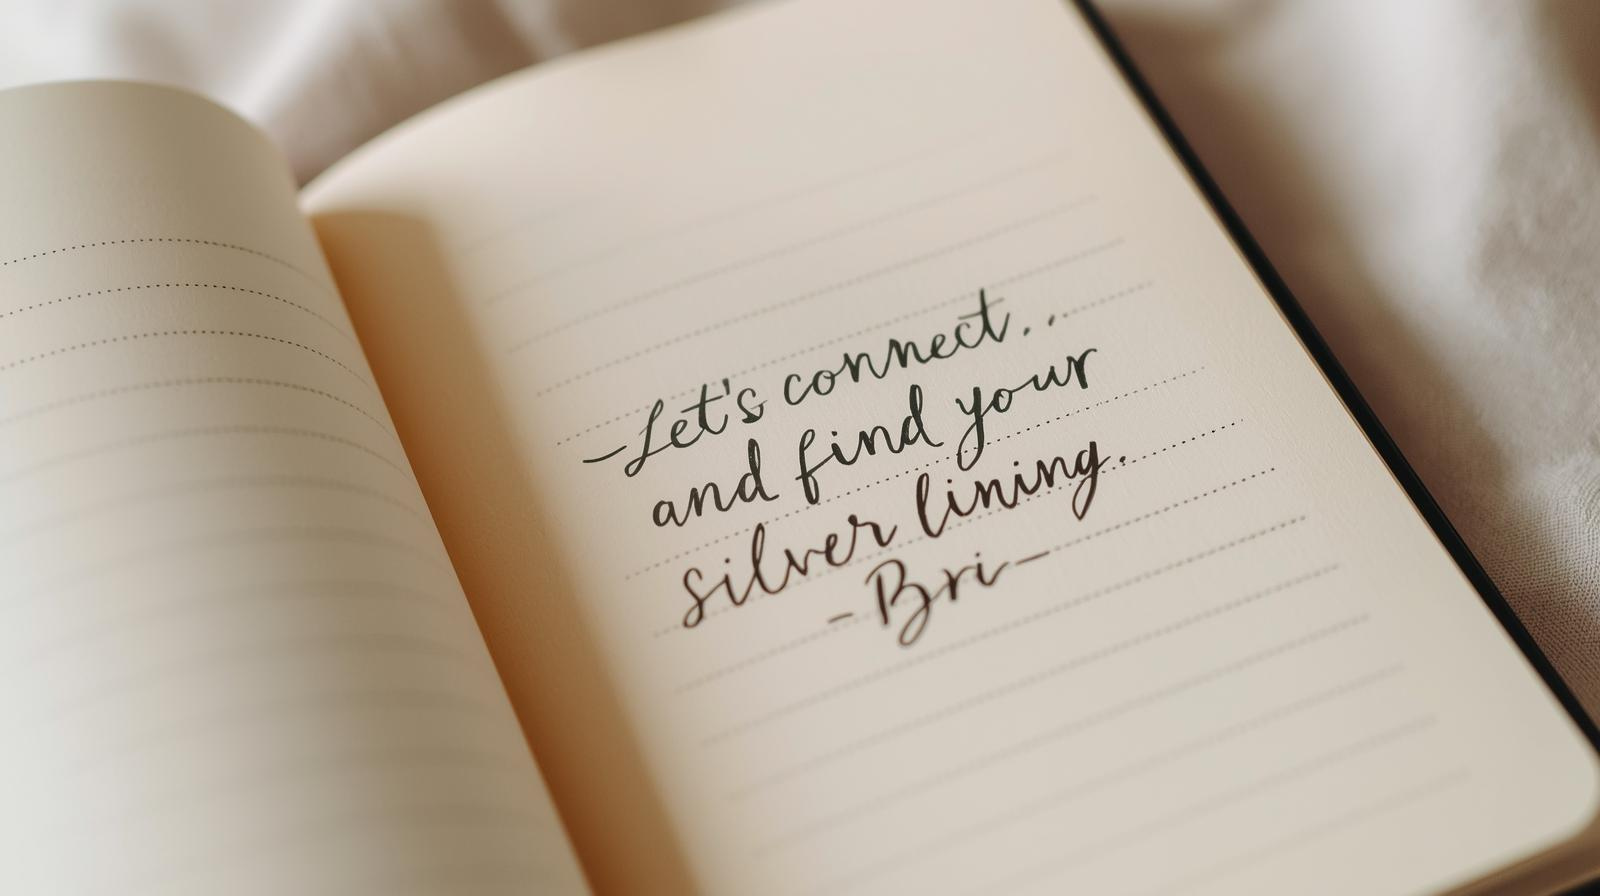 -Let's connect..
and find your
silver lining.
-Bri-